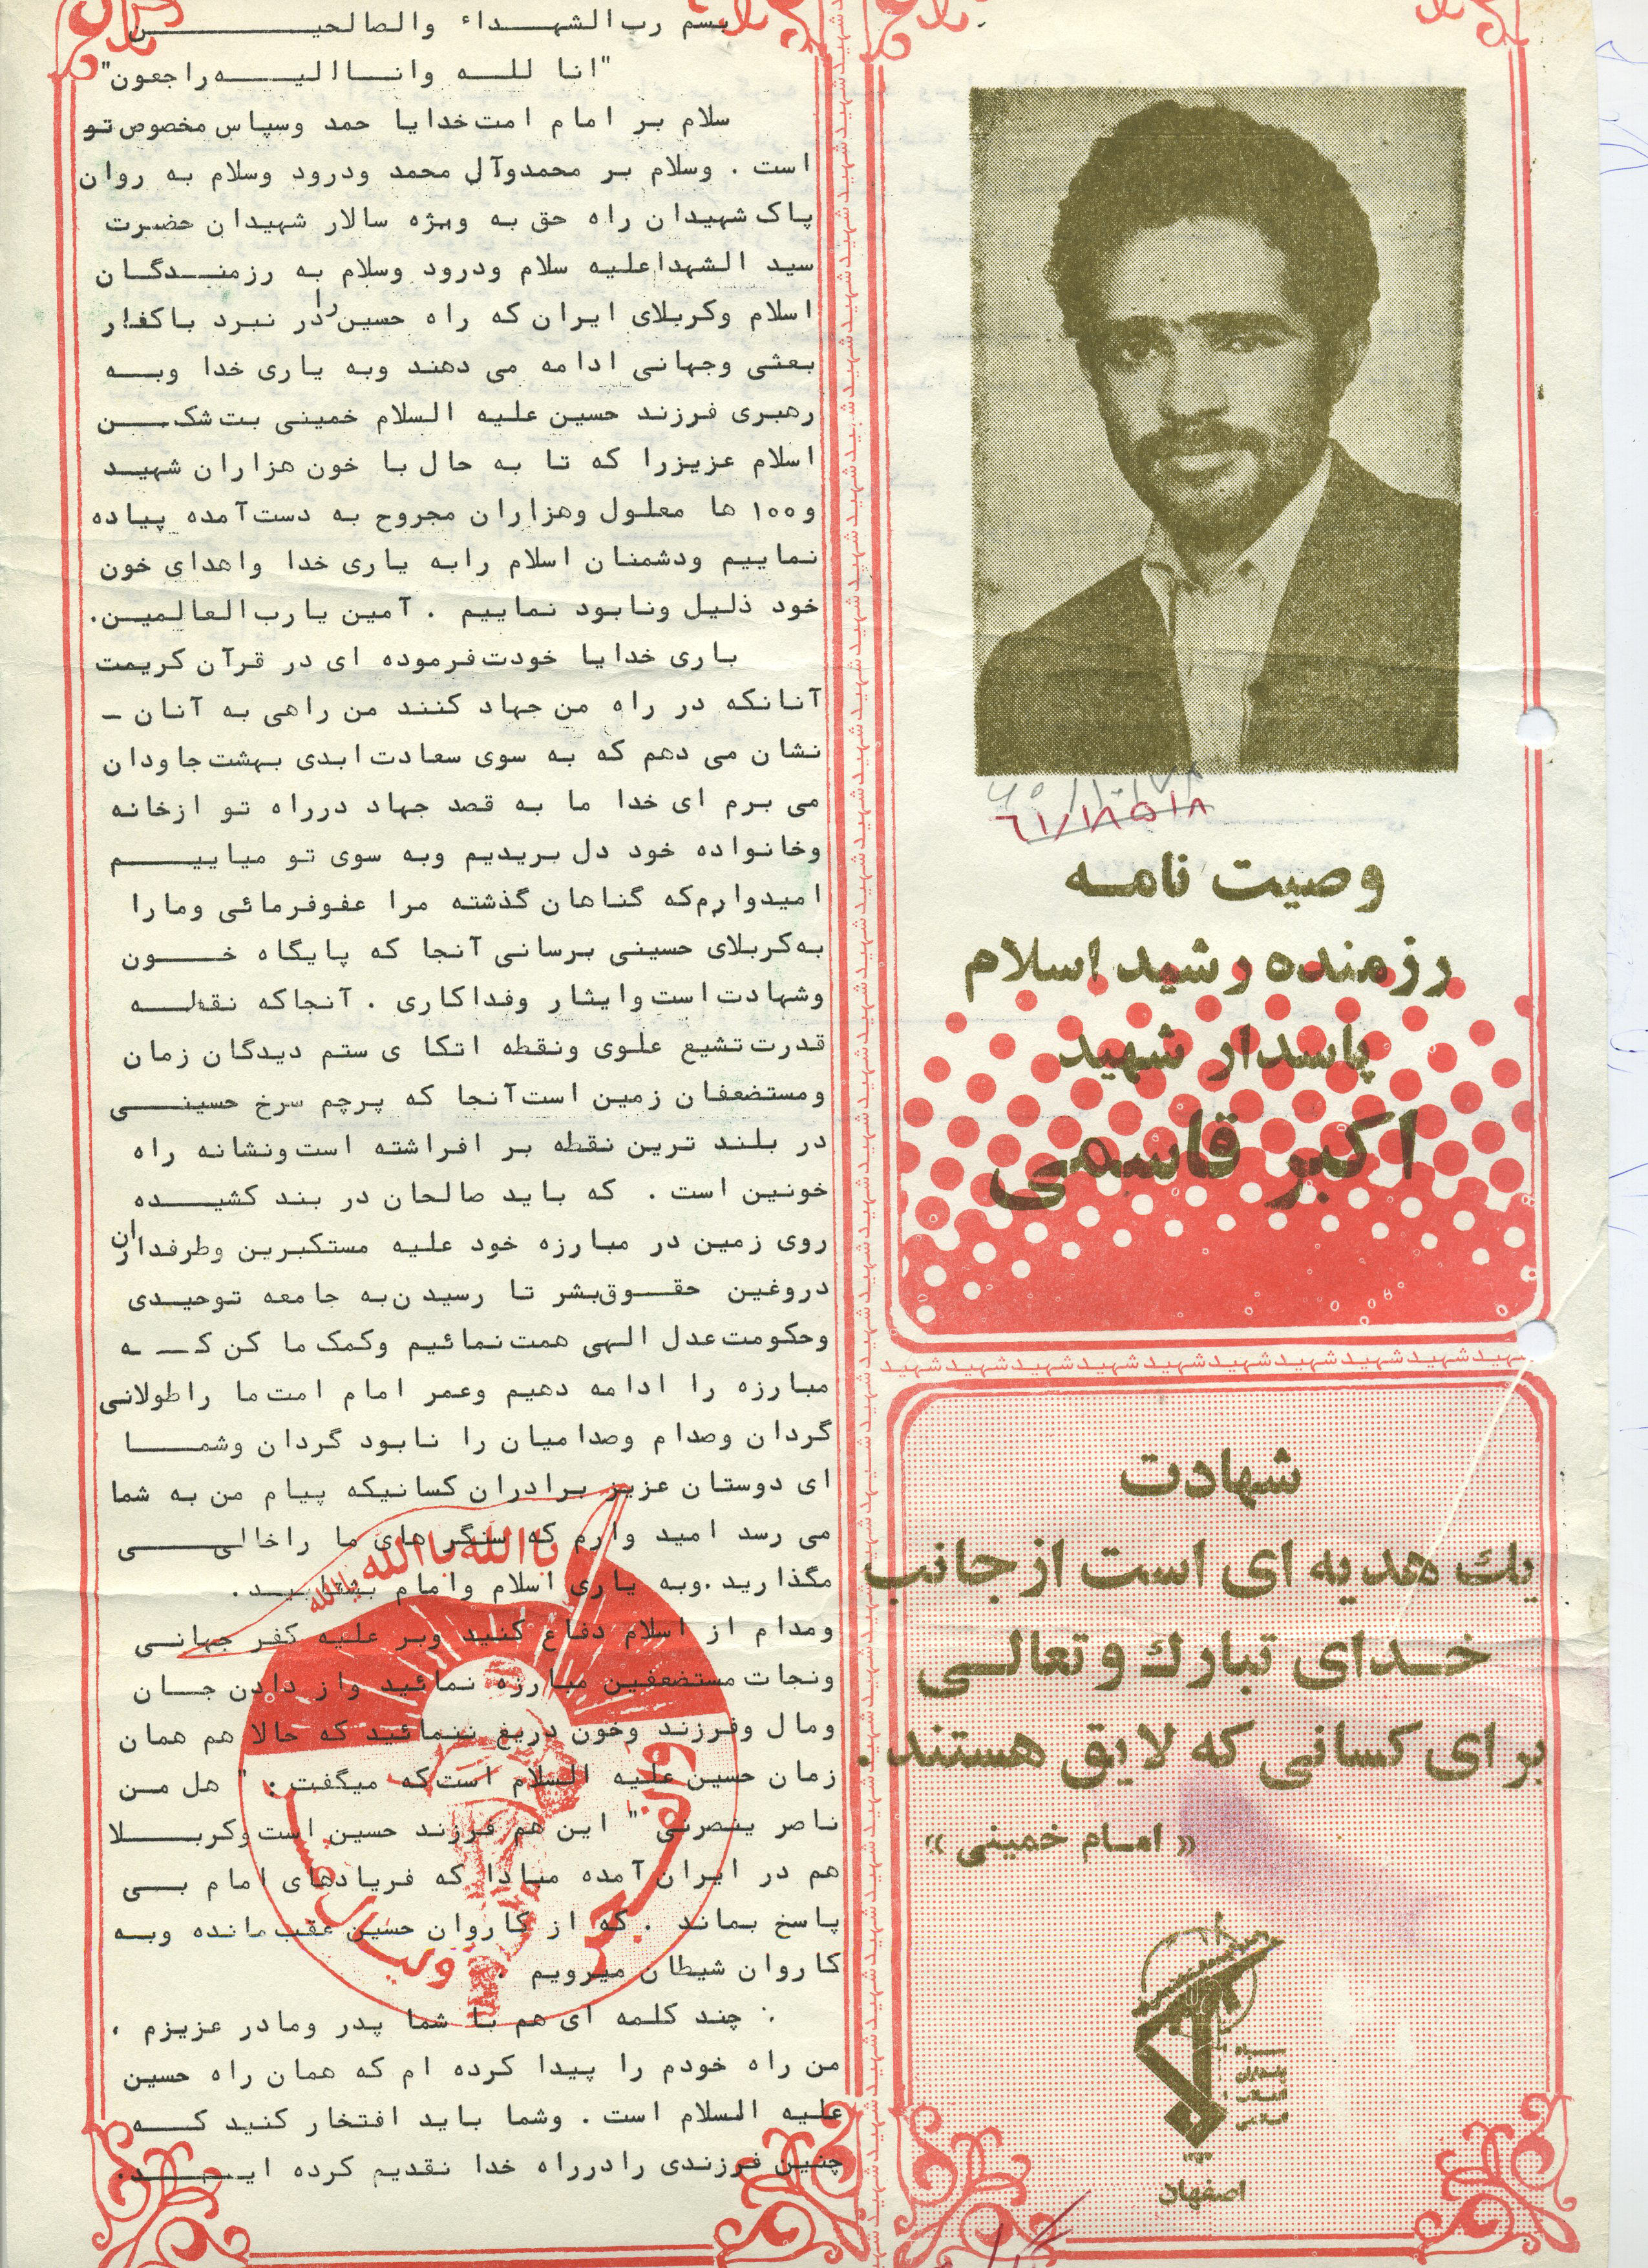 بسم رب الشهداء والصالحین
"انا لله وانا الیه راجعون"
سلام بر امام امت خدایا حمد وسپاس مخصوص تو
است . وسلام بر محمدوآل محمد ودرود وسلام به روان
پاک شهیدان راه حق به ویژه سالار شهیدان حضرت
سید الشهدا علیه سلام ودرود وسلام به رزمندگان
اسلام وکربلای ایران که راه حسین را در نبرد باکفار
بعثی وجهانی ادامه می دهند وبه یاری خدا وبه
رهبری فرزند حسین علیه السلام خمینی بت شکن
اسلام عزیزرا که تا به حال با خون هزاران شهید
و۱۰۰ ها معلول وهزاران مجروح به دست آمده پیاده
نماییم ودشمنان اسلام رابه یاری خدا واهدای خون
خود ذلیل ونابود نماییم . آمین یارب العالمین.
باری خدایا خودت فرموده ای در قرآن کریمت
آنانکه در راه من جهاد کنند من راهی به آنان -
نشان می دهم که به سوی سعادت ابدی بهشت جاودان
می برم ای خدا ما به قصد جهاد درراه تو ازخانه
وخانواده خود دل بریدیم وبه سوی تو میاییم
امیدوارم که گناهان گذشته مرا عفوفرمائی ومارا
به کربلای حسینی برسانی آنجا که پایگاه خون
وشهادت است وایثار وفداکاری . آنجاکه نقطه
قدرت تشیع علوی ونقطه اتکا ی ستم دیدگان زمان
ومستضعفان زمین است آنجا که پرچم سرخ حسینی
در بلند ترین نقطه بر افراشته است ونشانه راه
خونین است . که باید صالحان در بند کشیده
روی زمین در مبارزه خود علیه مستکبرین وطرفداران
دروغین حقوق بشر تا رسیدن به جامعه توحیدی
وحکومت عدل الهی همت نمائیم وکمک ما کن که
مبارزه را ادامه دهیم وعمر امام امت ما را طولانی
گردان وصدام وصدامیان را نابود گردان وشما
ای دوستان عزیز برادران کسانیکه پیام من به شما
می رسد امید وارم که سنگر های ما راخالی
مگذارید .وبه یاری اسلام وامام بیائید .
ومدام از اسلام دفاع کنید وبر علیه کفر جهانی
ونجات مستضعفین مبارزه نمائید واز دادن جان
ومال وفرزند وخون دریغ ننمائید که حالا هم همان
زمان حسین علیه السلام است که میگفت : " هل من
ناصر ینصرنی " این هم فرزند حسین است وکربلا
هم در ایران آمده مبادا که فریادهای امام بی
پاسخ بماند . که از کاروان حسین عقب مانده وبه
کاروان شیطان میرویم .
چند کلمه ای هم با شما پدر ومادر عزیزم ،
من راه خودم را پیدا کرده ام که همان راه حسین
علیه السلام است . وشما باید افتخار کنید که
چنین فرزندی را درراه خدا تقدیم کرده اید.
یا الله یا الله یا الله
والفجر
ولیال عشر
۶۱/۱۸۵۱۸
وصیت نامه
رزمنده رشید اسلام
پاسدار شهید
اکبر قاسمی
شهید شهید شهید شهید شهید شهید شهید شهید شهید شهید
شهادت
یك هدیه ای است از جانب
خدای تبارك و تعالی
برای کسانی که لایق هستند .
« امام خمینی »
سپاه
پاسداران
انقلاب
اسلامی
اصفهان